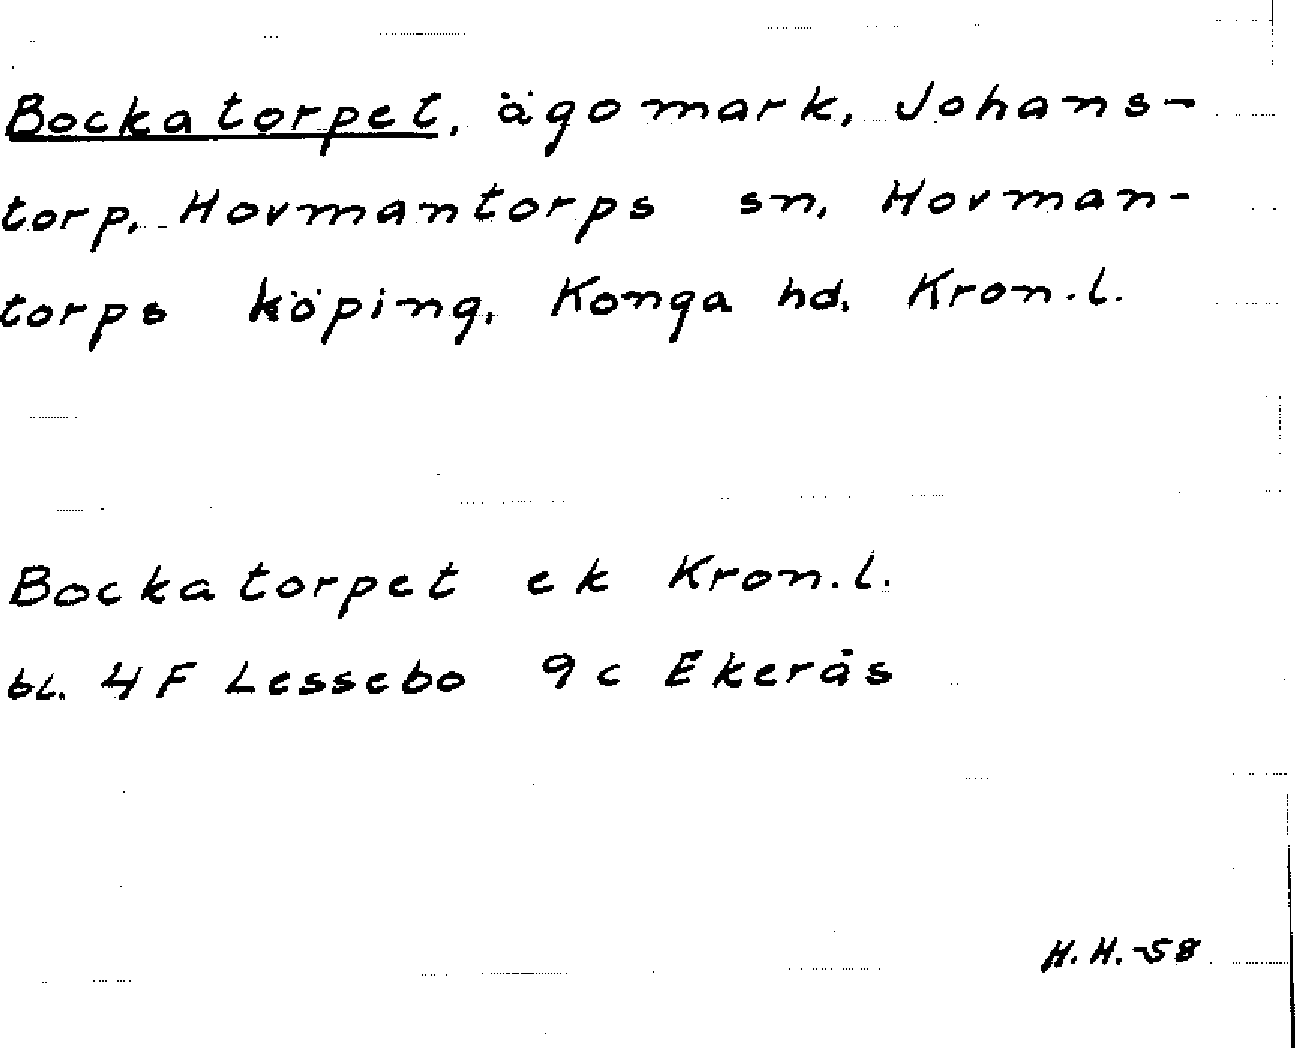 Bockatorpet, ägomark, Johans-
torp, Hovmantorps sn, Hovman-
torps köping, Konga hd, Kron.l.
Bockatorpet ek Kron.l.
bl. 4F Lessebo 9c Ekerås
H.H.-58